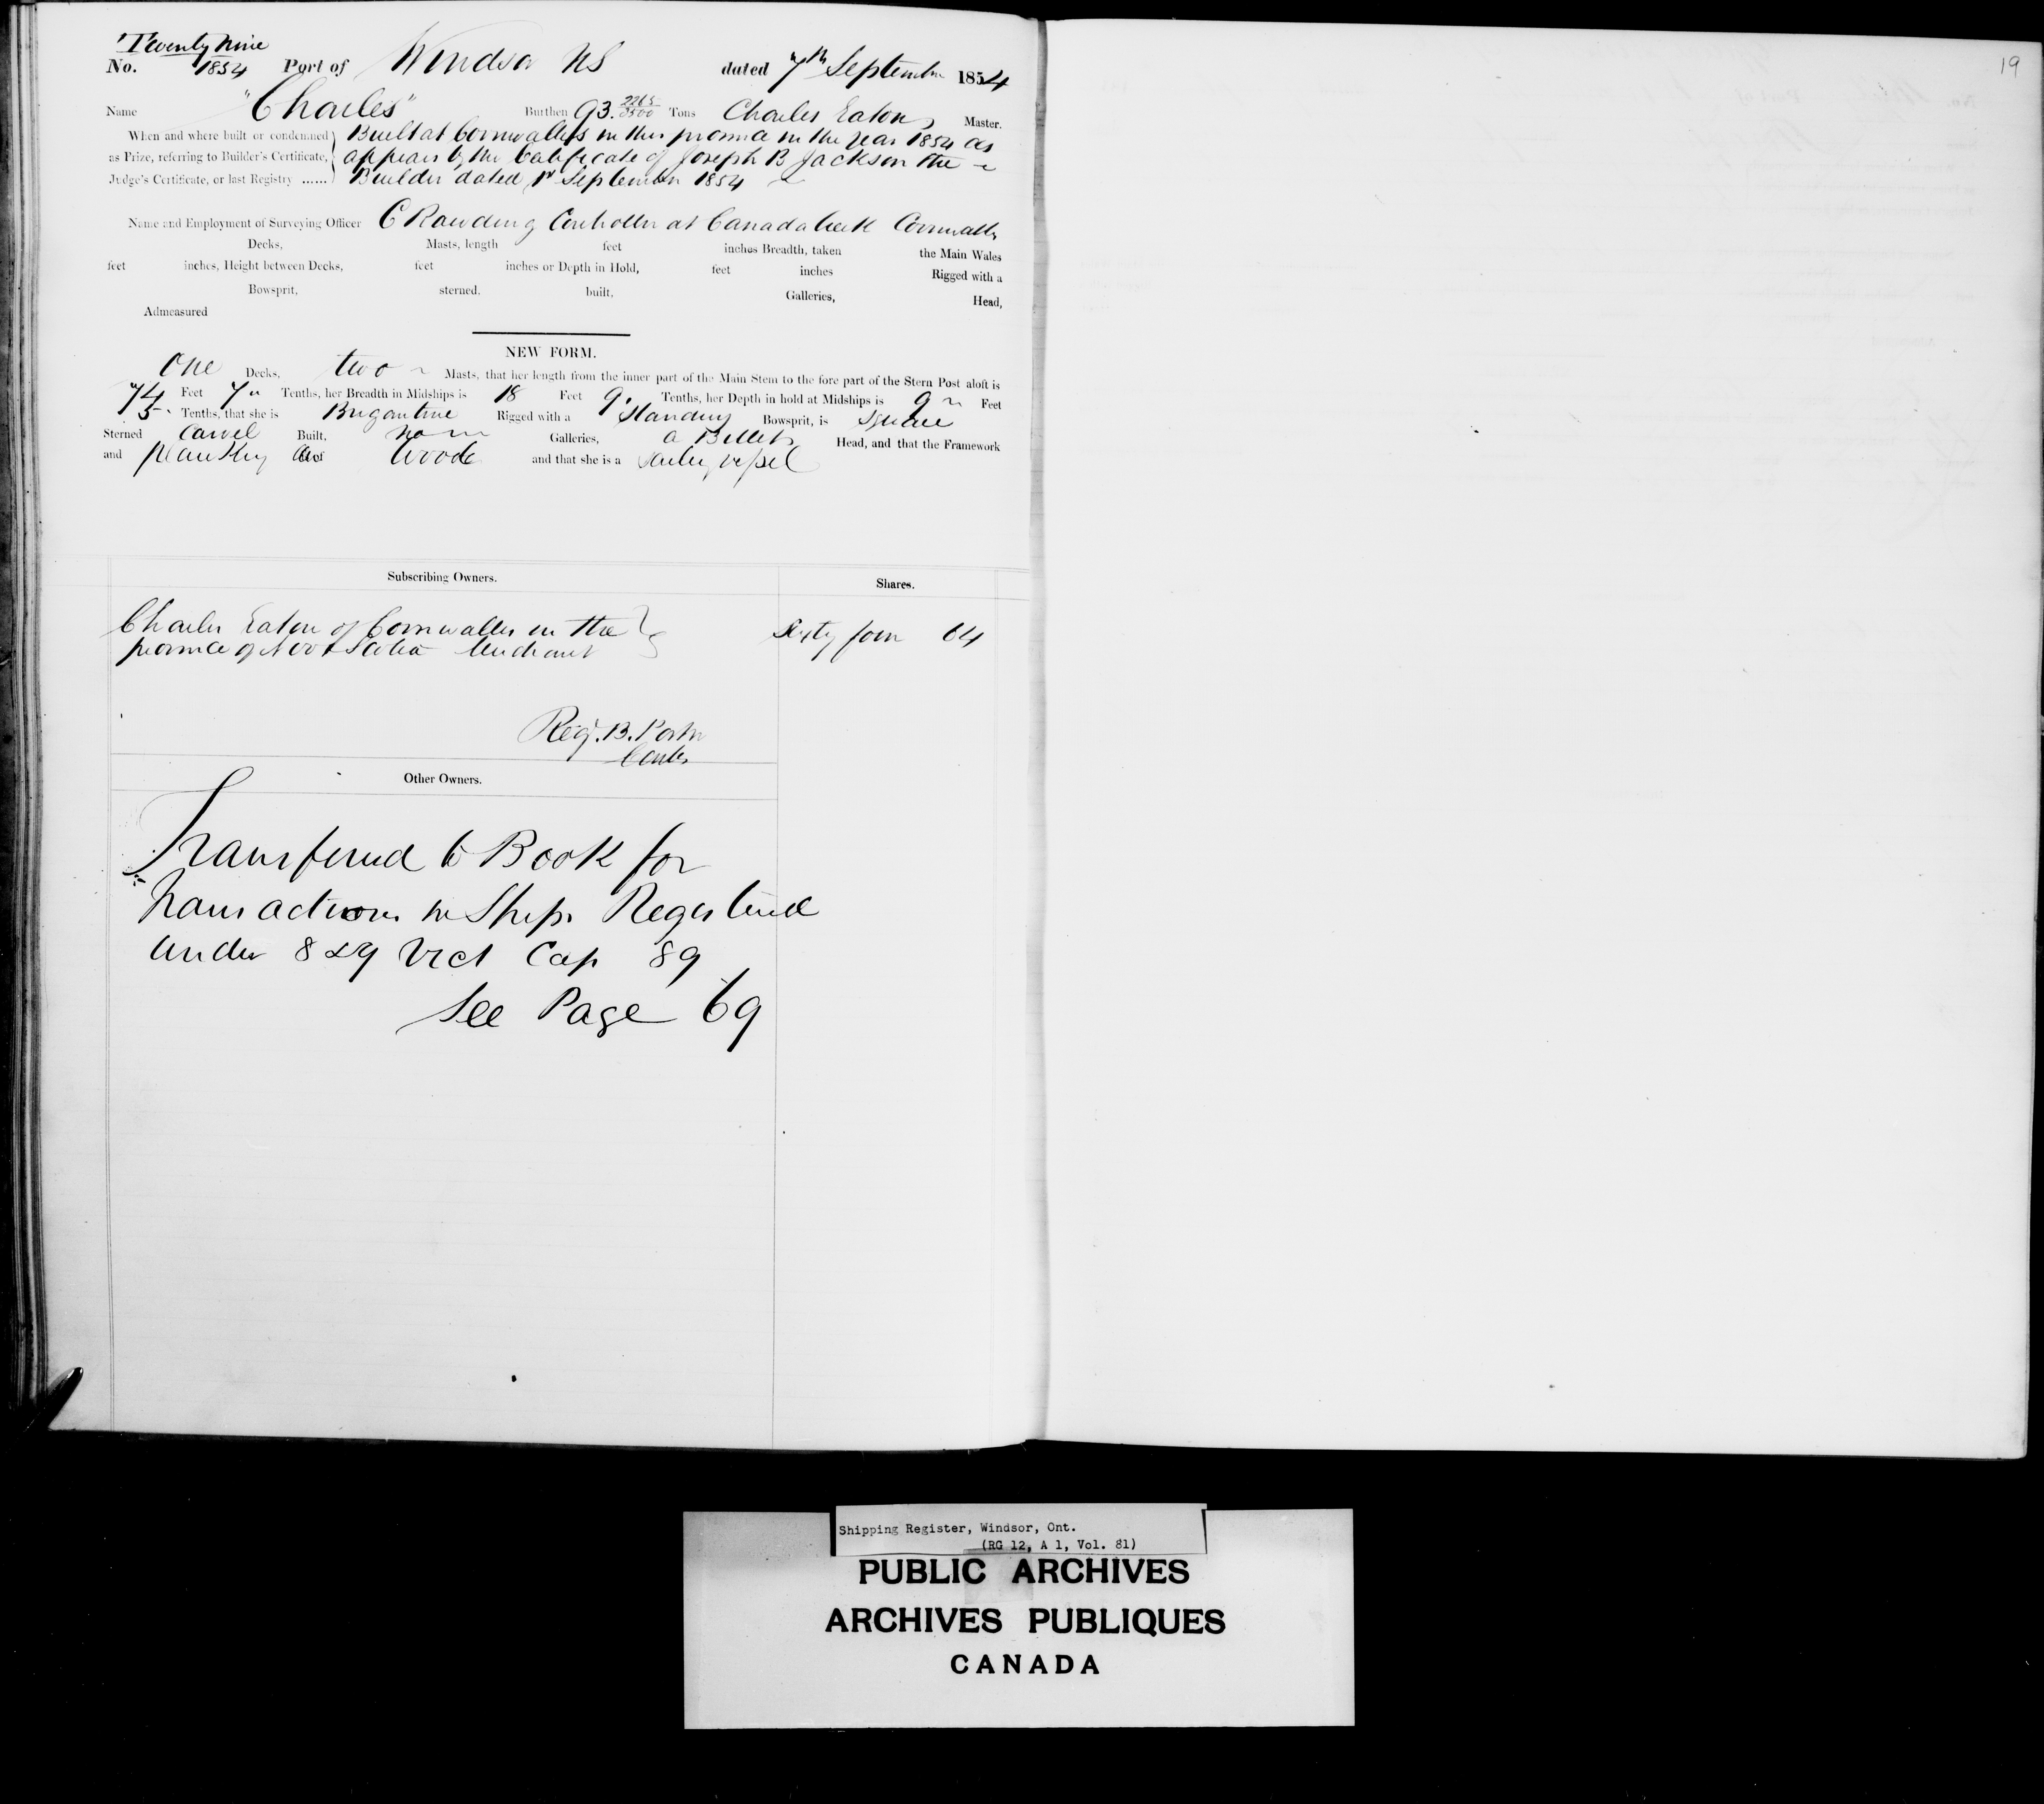 Twenty Nine
No. 1854 Port of Windsor NS dated 7th September 1854
Name "Charles" Burthen 93. 2265/3500 Tons Charles Eaton Master.
When and where built or condemned Built at Cornwallis in this province in the year 1854 as
as Prize, referring to Builder's Certificate, appears by the Certificate of Joseph B Jackson the
Judge's Certificate, or last Registry ...... Builder dated 1st September 1854
Name and Employment of Surveying Officer C Rawding Controller at Canada Creek Cornwallis
Decks, Masts, length feet inches Breadth, taken the Main Wales
feet inches, Height between Decks, feet inches or Depth in Hold, feet inches Rigged with a
Bowsprit, sterned, built, Galleries, Head,
Admeasured
NEW FORM.
One Decks, two Masts, that her length from the inner part of the Main Stem to the fore part of the Stern Post aloft is
74 Feet 7 Tenths, her Breadth in Midships is 18 Feet 9 Tenths, her Depth in hold at Midships is 9 Feet
5 Tenths, that she is Brigantine Rigged with a Standing Bowsprit, is Square
Sterned Carvel Built, no Galleries, a Billet Head, and that the Framework
and planking is of Wood and that she is a Sailing vessel
Subscribing Owners. Shares.
Charles Eaton of Cornwallis in the
province of Nova Scotia Merchant Sixty four 64
Regd. B. Porter
Contr
Other Owners.
Transferred to Book for
transactions in Ships Registered
under 8 & 9 Vict Cap 89
See Page 69
19
Shipping Register, Windsor, Ont.
(RG 12, A 1, Vol. 81)
PUBLIC ARCHIVES
ARCHIVES PUBLIQUES
CANADA